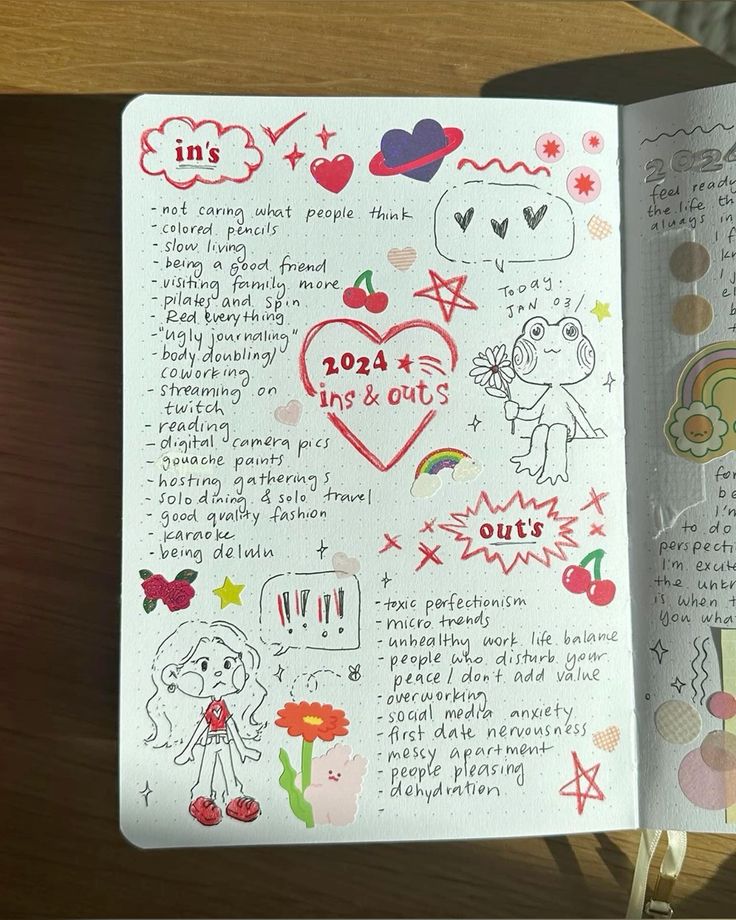 in's
- not caring what people think
- colored pencils
- slow living
- being a good friend
- visiting family more
- pilates and spin
- Red everything
- "ugly journaling"
- body doubling/
coworking
- streaming on
twitch
- reading
- digital camera pics
- gouache paints
- hosting gatherings
- solo dining & solo travel
- good quality fashion
- karaoke
- being delulu
Today:
JAN 03/
2024
ins & outs
out's
- toxic perfectionism
- micro trends
- unhealthy work life balance
- people who disturb your
peace / don't add value
- overworking
- social media anxiety
- first date nervousness
- messy apartment
- people pleasing
- dehydration
-
!!!!
2024
feel ready
the life th
always in
I f
kn
I j
el
b
t
for
be
I'm
to do
perspecti
I'm excite
the unkn
is when t
you wha